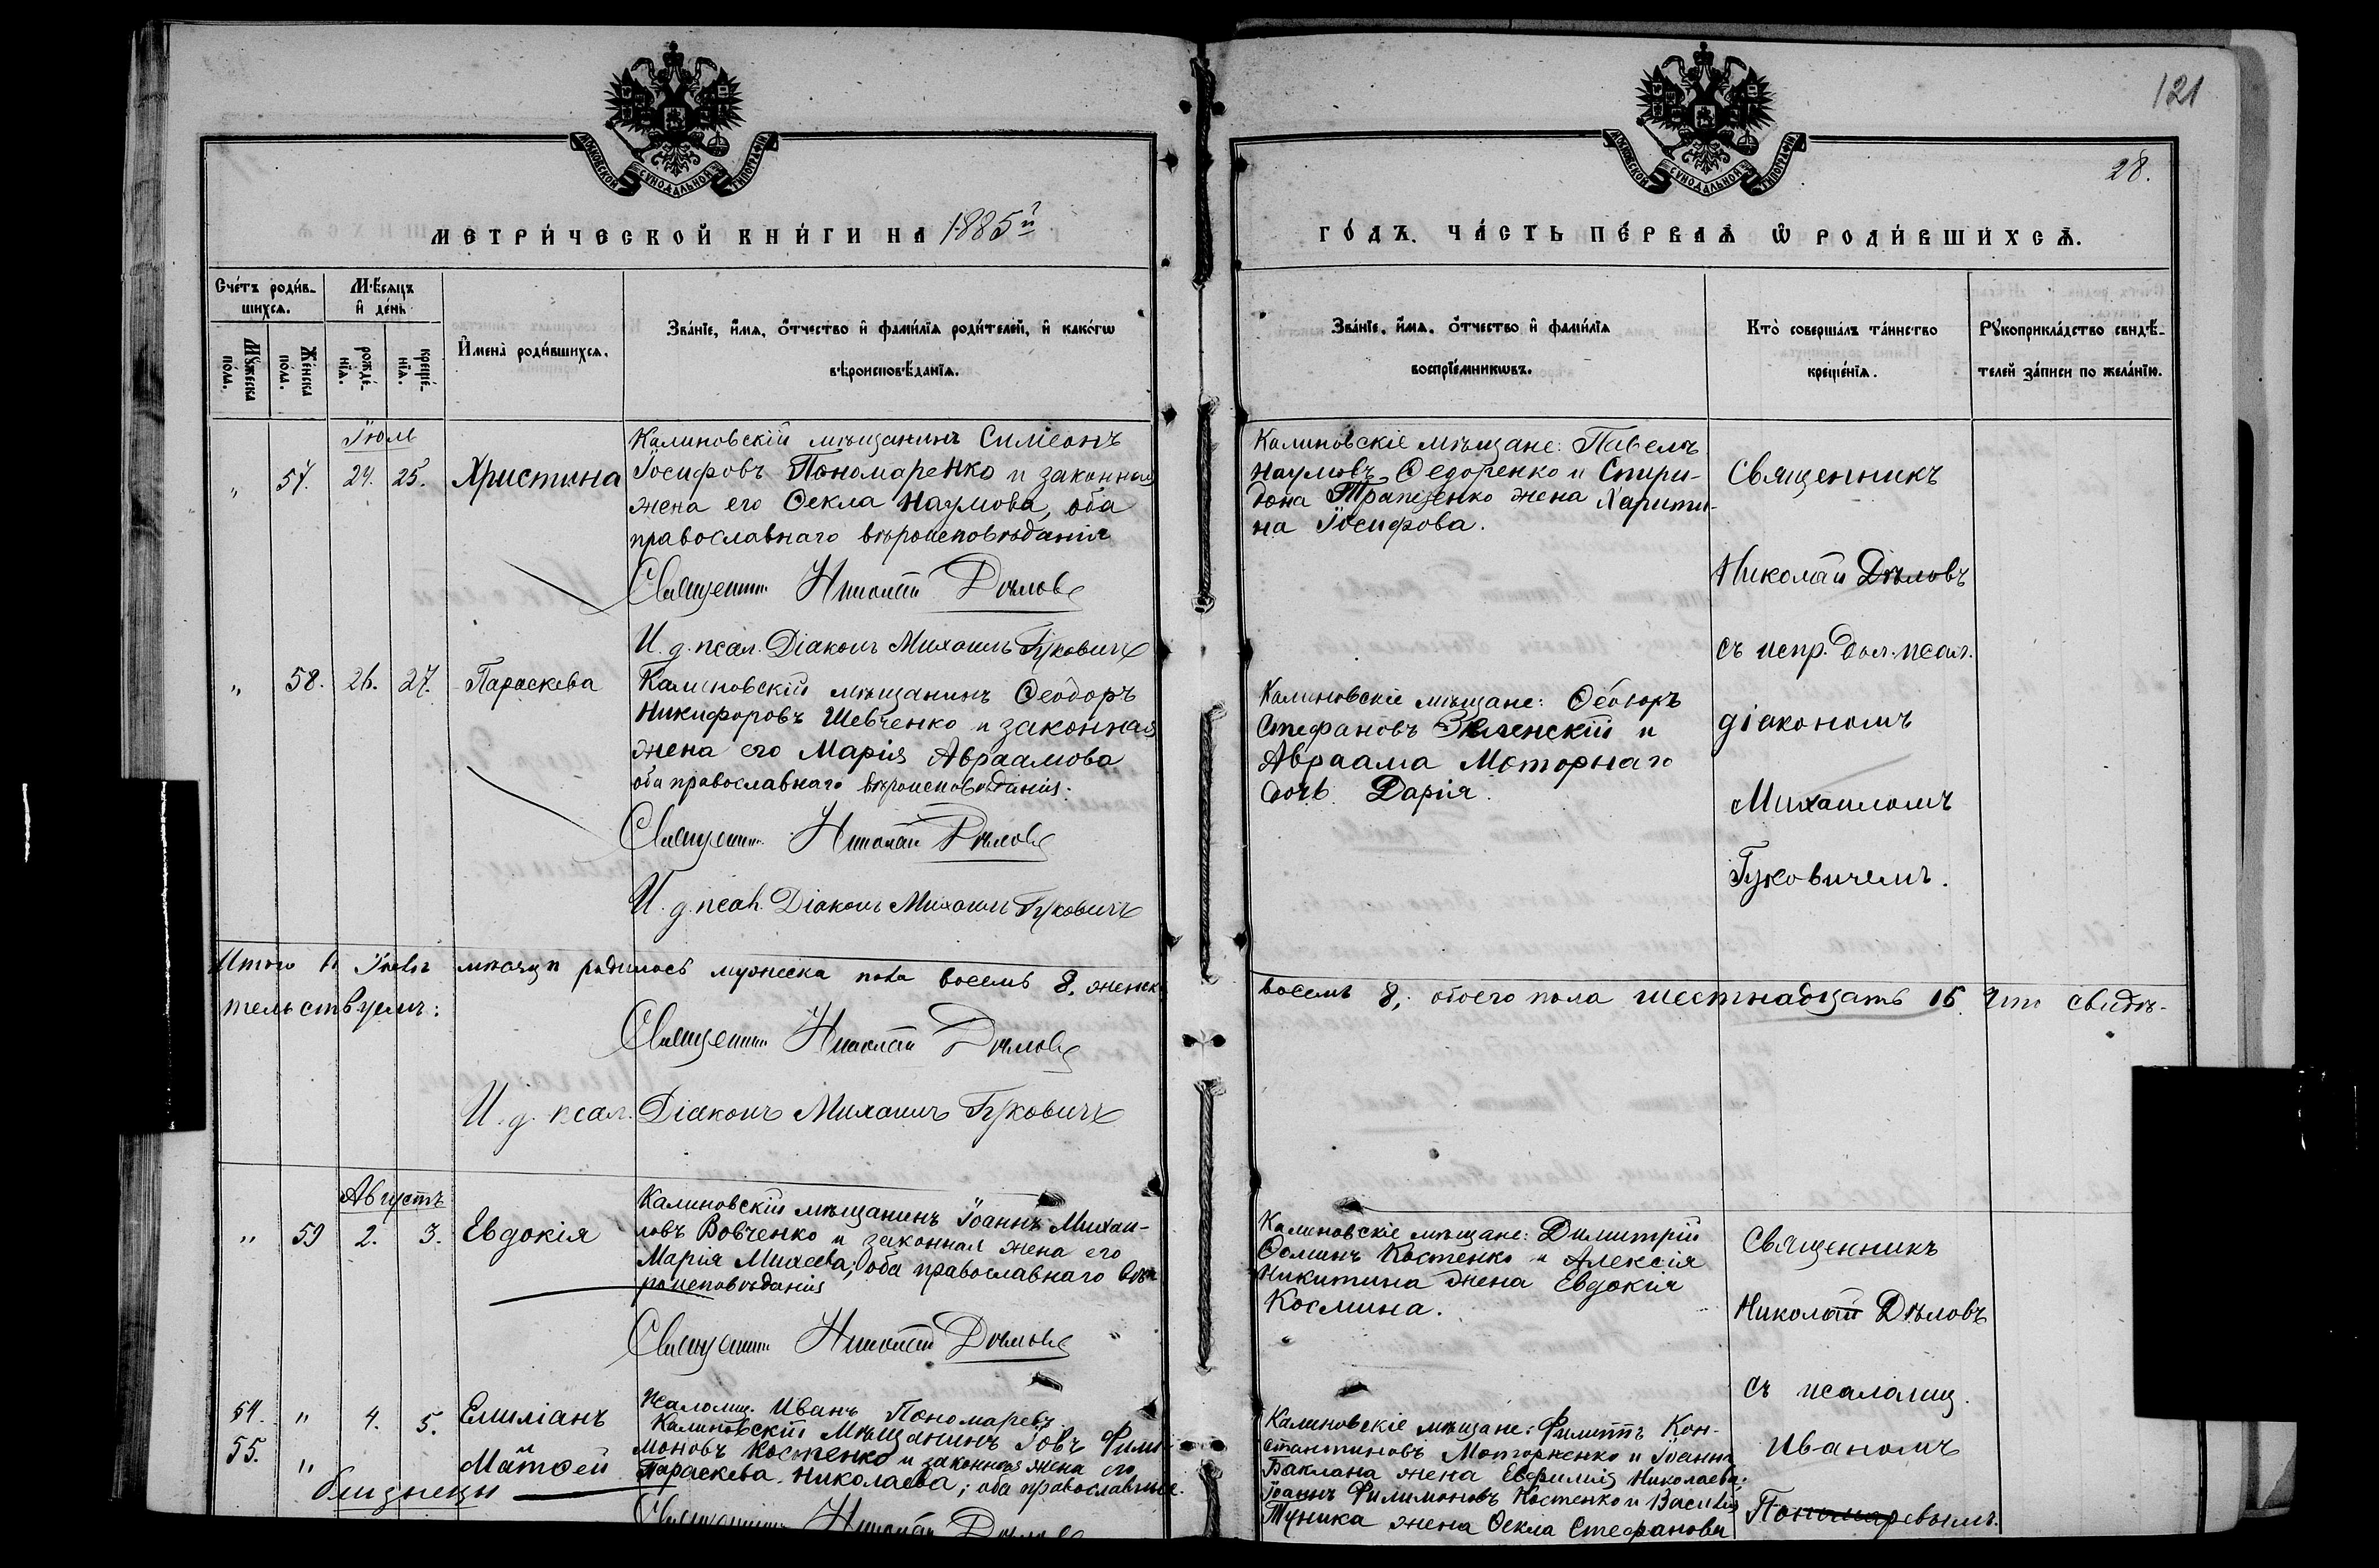 121
28.
МОСКОВСКОЙ СѴНОДАЛЬНОЙ ТИПОГРАФІИ
МОСКОВСКОЙ СѴНОДАЛЬНОЙ ТИПОГРАФІИ
МЕТРИ́ЧЕСКОЙ КНИ́ГИ НА 1885й
ГО́ДЪ. ЧА́СТЬ ПЕ́РВАѦ Ѡ РОДИ́ВШИХСѦ.
Сче́тъ роди́в-
шихсѧ.
Мꙋ́жеска пола.
Же́нска пола.
Мѣ́сѧцъ
и҆ де́нь
рожде́-
нїѧ.
креще́-
нїѧ.
И҆мена̀ роди́вшихсѧ.
Зва́нїе, и҆́мѧ, ѻ҆́тчество и҆ фами́лїѧ роди́телей, и҆ како́гѡ
вѣроисповѣ́данїѧ.
Зва́нїе, и҆́мѧ, ѻ҆́тчество и҆ фами́лїѧ
воспрїе́мникѡвъ.
Кто̀ соверша́лъ та́инство
креще́нїѧ.
Рꙋкоприкла́дство свидѣ́-
телей за́писи по жела́нїю.
Іюль
" 57. 24. 25. Христина
Калиновскій мѣщанинъ Симеонъ
Іосифовъ Пономаренко и законная
жена его Ѳекла Наумова, оба
православнаго вѣроисповѣданія
Священникъ Николай Дѣловъ
И. д. псал. Діаконъ Михаилъ Гуковичъ
Калиновскіе мѣщане: Павелъ
Наумовъ Ѳедоренко и Спири-
дона Трапщенко жена Харити-
на Іосифова.
Священникъ
Николай Дѣловъ
съ испр. дол. псал.
діакономъ
Михаиломъ
Гуковичемъ.
" 58. 26. 27. Параскева
Калиновскій мѣщанинъ Ѳеодоръ
Никифоровъ Шевченко и законная
жена его Марія Авраамова
оба православнаго вѣроисповѣданія.
Священникъ Николай Дѣловъ
И. д. псал. Діаконъ Михаилъ Гуковичъ
Калиновскіе мѣщане: Ѳеодоръ
Стефановъ Зеленскій и
Авраама Моторнаго
дочь Дарія.
Итого въ Іюлѣ мѣсяцѣ родилось мужеска пола восемь 8, женск. восемь 8, обоего пола шестнадцать 16. Что свидѣ-
тельствуемъ:
Священникъ Николай Дѣловъ
И. д. псал. Діаконъ Михаилъ Гуковичъ
Августъ
" 59 2. 3. Евдокія
Калиновскій мѣщанинъ Іоаннъ Михаи-
ловъ Вовченко и законная жена его
Марія Михеева; оба православнаго вѣ-
роисповѣданія
Священникъ Николай Дѣловъ
Псаломщ. Иванъ Пономаревъ.
Калиновскіе мѣщане: Димитрій
Ѳоминъ Костенко и Алексія
Никитина жена Евдокія
Космина.
Священникъ
Николай Дѣловъ
съ псаломщ.
Иваномъ
Пономаревымъ.
54. " 4. 5. Емиліанъ
55. " Матѳей
близнецы
Калиновскій Мѣщанинъ Іовъ Фили-
моновъ Костенко и законная жена его
Параскева Николаева; оба православные.
Священникъ Николай Дѣловъ
Калиновскіе мѣщане: Филиппъ Кон-
стантиновъ Моторженко и Іоанна
Баклана жена Евфимія Николаева;
Іоаннъ Филимоновъ Костенко и Василія
Туника жена Ѳекла Стефанова